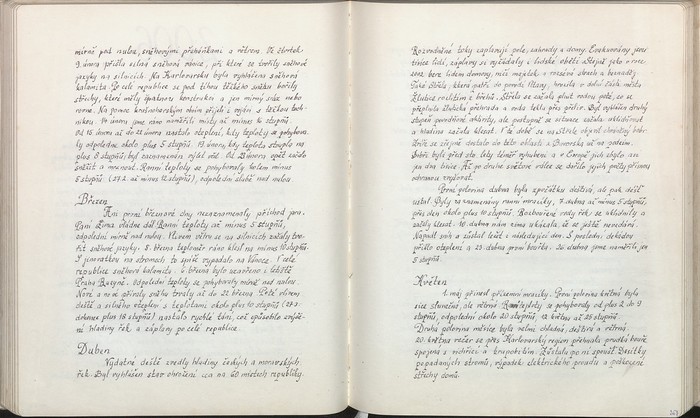 mírně pod nulou, sněhovými přeháňkami a větrem. Ve čtvrtek
9. února přišla silná sněhová vánice, při které se tvořily sněhové
jazyky na silnicích. Na Karlovarsku byla vyhlášena sněhová
kalamita. Po celé republice se pod tíhou těžkého sněhu bořily
střechy, které měly špatnou konstrukci a jen mírný sklon nebo
rovné. Na pomoc krušnohorským obcím přijeli vojáci s těžkou tech-
nikou. 14. února jsme ráno naměřili místy až minus 16 stupňů.
Od 15. února až do 22. února nastalo oteplení, kdy teploty se pohybova-
ly odpoledne okolo plus 5 stupňů. 19. února, kdy teplota stoupla na
plus 8 stupňů, byl zaznamenán výlet včel. Od 23. února opět začalo
sněžit a mrznout. Ranní teploty se pohybovaly kolem minus
5 stupňů (27.2. až minus 12 stupňů), odpoledne slabě nad nulou.
Březen
Ani první březnové dny neoznamovaly příchod jara.
Paní Zima vládne dál. Ranní teploty až minus 5 stupňů,
odpolední mírně nad nulou. Vlivem větru se na silnicích začaly tvo-
řit sněhové jazyky. 5. března teploměr ráno klesl na minus 10 stupňů.
S jinovatkou na stromech to spíše vypadalo na Vánoce. V celé
republice sněhová kalamita. 6. března bylo uzavřeno i letiště
Praha Ruzyně. Odpolední teploty se pohybovaly mírně nad nulou.
Nové a nové přívaly sněhu trvaly až do 22. března. Poté vlivem
deště a silného oteplení s teplotami okolo plus 10 stupňů (27.3.
dokonce plus 18 stupňů) nastalo rychlé tání, což způsobilo zvýše-
ní hladiny řek a záplavy po celé republice.
Duben
Vydatné deště zvedly hladiny českých a moravských
řek. Byl vyhlášen stav ohrožení cca na 60 místech republiky.
Rozvodněné toky zaplavují pole, zahrady a domy. Evakuovány jsou
tisíce lidí, záplavy si vyžádaly i lidské oběti. Stejně jako v roce
2002 bere lidem domovy, ničí majetek a rozsévá strach a beznaděj.
Také Střela, která patří do povodí Vltavy, hrozila v dolní části města
Žlutic rozlitím z břehů. Střela se začala plnit vodou poté, co se
přeplnila Žlutická přehrada a voda tekla přes přeliv. Byl vyhlášen druhý
stupeň povodňové aktivity, ale postupně se situace začala uklidňovat
a hladina začala klesat. V té době se na Střele objevil chráněný bobr.
Dříve se zřejmě dostalo do této oblasti z Bavorska až na podzim.
Bobři byli před sto lety téměř vyhubeni a v Evropě jich zbylo asi
jen dva tisíce. Až po druhé světové válce se dařilo jejich počty přísnou
ochranou zvyšovat.
První polovina dubna byla zpočátku deštivá, až pak déšť
ustal. Byly zaznamenány ranní mrazíky, 7. dubna až minus 5 stupňů,
přes den okolo plus 10 stupňů. Rozbouřené vody řek se uklidnily a
začaly klesat. 10. dubna nám zima ukázala, že se ještě nevzdává.
Napadl sníh a zůstal ležet i následující den. S poslední dekádou
přišlo oteplení a 23. dubna první bouřka. 26. dubna jsme naměřili jen
5 stupňů.
Květen
1. máj přinesl přízemní mrazíky. První polovina května byla
sice slunečná, ale větrná. Ranní teploty se pohybovaly od plus 2 do 9
stupňů, odpolední okolo 20 stupňů, 12. května až 25 stupňů.
Druhá polovina měsíce byla velmi chladná, deštivá a větrná.
20. května večer se přes Karlovarský region přehnala prudká bouře
spojená s vichřicí a krupobitím. Zůstala po ní spoušť. Desítky
popadaných stromů, výpadek elektrického proudu a poškozené
střechy domů.